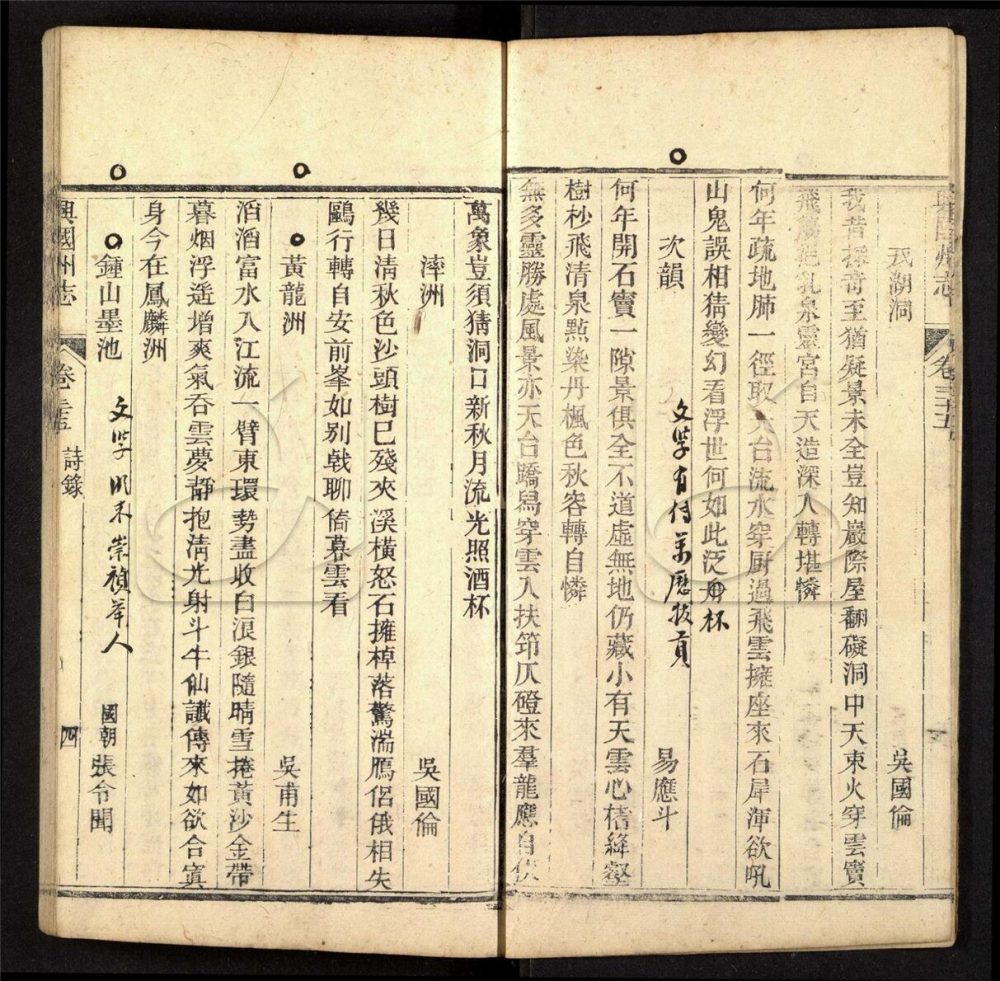 興國州志
卷三十五
玭湖洞
吳國倫
我昔探奇至猶疑景未全豈知巖際屋翻礙洞中天束火穿雲竇
飛觴挹乳泉靈宮自天造深入轉堪憐
何年疏地肺一徑取天台流水穿厨過飛雲擁座來石犀渾欲吼
山鬼誤相猜變幻看浮世何如此泛舟杯
次韻
文學有傳萬曆拔貢
易應斗
何年開石竇一隙景俱全不道虛無地仍藏小有天雲心棲絳壑
樹杪飛清泉點染丹楓色秋容轉自憐
無多靈勝處風景亦天台蹻舄穿雲入扶筇仄磴來羣龍應自伏
萬象豈須猜洞口新秋月流光照酒杯
滓洲
吳國倫
幾日清秋色沙頭樹已殘夾溪橫怒石擁棹落驚湍鴈侶俄相失
鷗行轉自安前峯如别戟聊倚暮雲看
黃龍洲
吳甫生
滔滔富水入江流一臂東環勢盡收白浪銀隨晴雪捲黃沙金帶
暮烟浮遥增爽氣吞雲夢靜抱清光射斗牛仙讖傳來如欲合寘
身今在鳳麟洲
鍾山墨池
文學 明末崇禎舉人
國朝張令聞
興國州志
卷三十五
詩錄
四